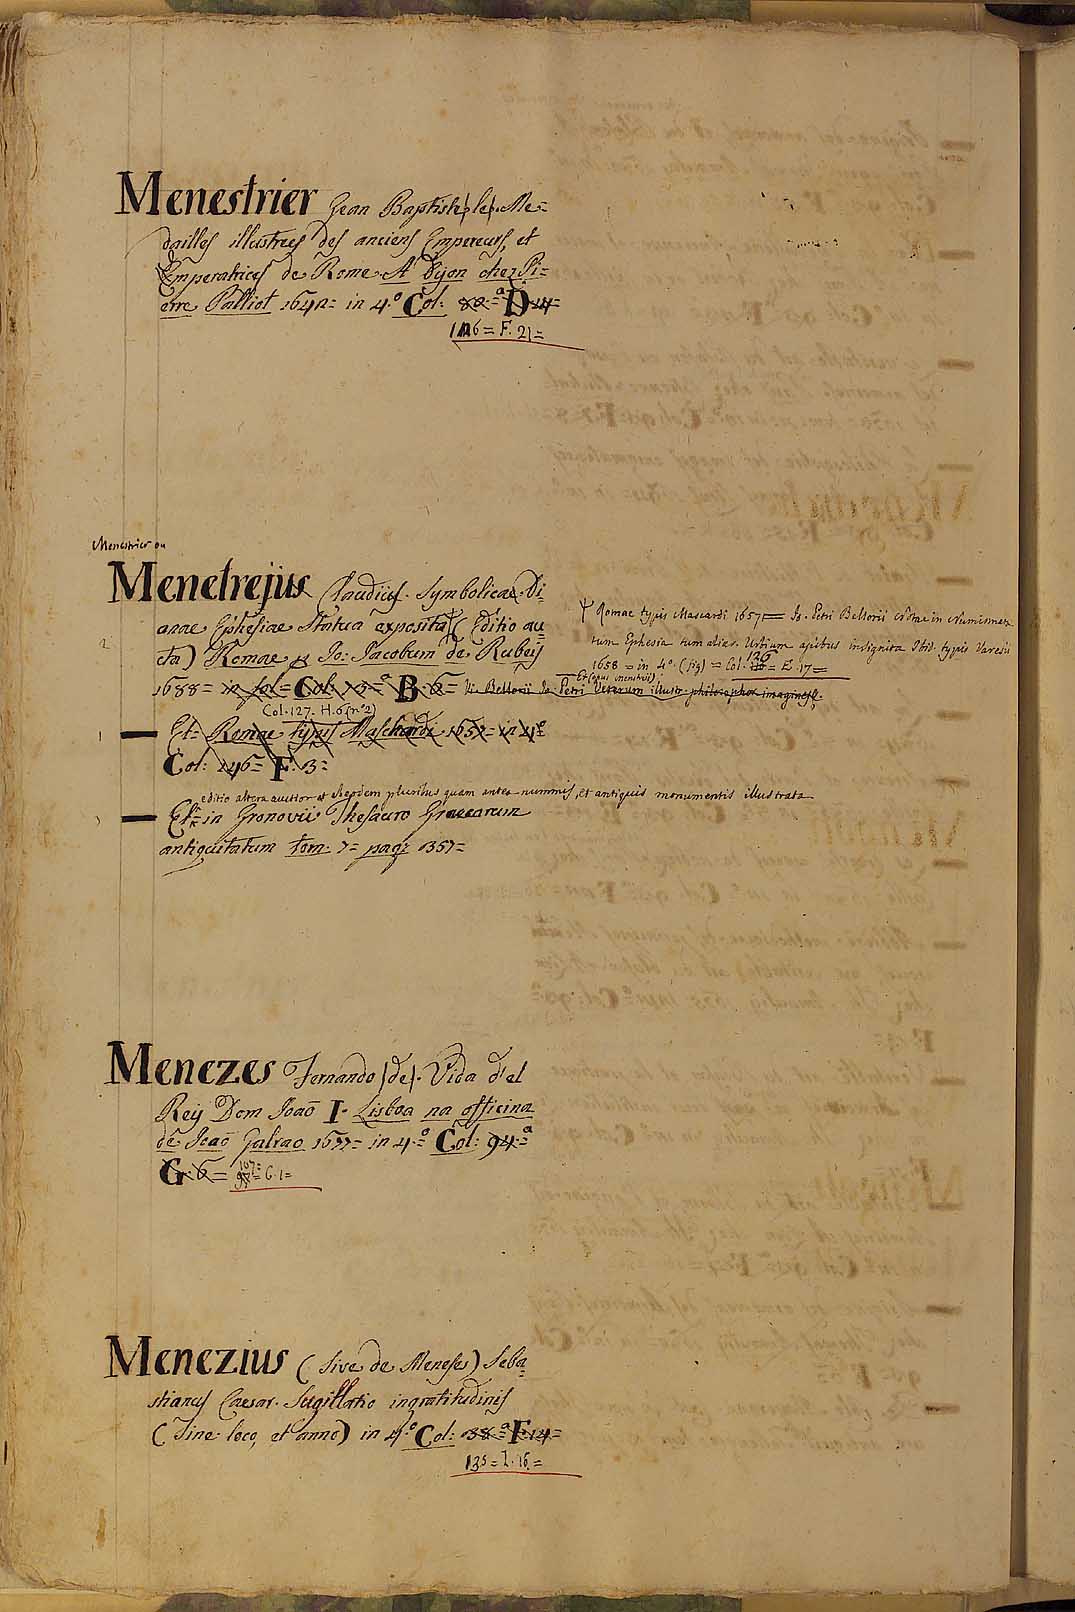 Menestrier Jean Baptiste (le). Me=
dailles illustrees des anciens Empereurs, et
Emperatrices de Rome. A Dijon chez Pi=
erre Palliot 1642= in 4.° Col: 82=ª D.14=
126= F. 21=
Menestrier ou
Menetrejus Claudius. Symbolicae Di-
anae Ephesiae Statua exposita (Editio au
cta) Romae Jo: Jacobum de Rubeis
1688= in fol= Col: 73=ª B. 6=
Col. 127. H. 6 (n° 2)
Romae typis Mascardi 1657= Jo. Petri Bellorii in Numismata
tum Ephesia tum aliar. Urbium apibus insignita Ibid. typis Varesii
1658= in 4.° (fig)= Col: 126= F. 17=
Petri Veterum illustr. philosophor. imagines.
1 — Et= Romae typis Maschardi 1657= in 4.°
Col: 146= F. 3=
editio altera auctior et pluribus quam antea nummis, et antiquis monumentis illustrata
— Et= in Gronovii Thesauro Graecarum
antiquitatum tom. 7= pag: 357=
Menezes Fernando (de). Vida d'el
Rey Dom Joaõ I. Lisboa na officina
de Joaõ Galrao 1677= in 4.° Col: 94=ª
G. 6= 107= G. 1=
Menezius (Sive de Menese) Seba=
stianus Caesar. Sugillatio ingratitudinis
(Sine loco, et anno) in 4.° Col: 38=ª F. 14=
135= I. 16=